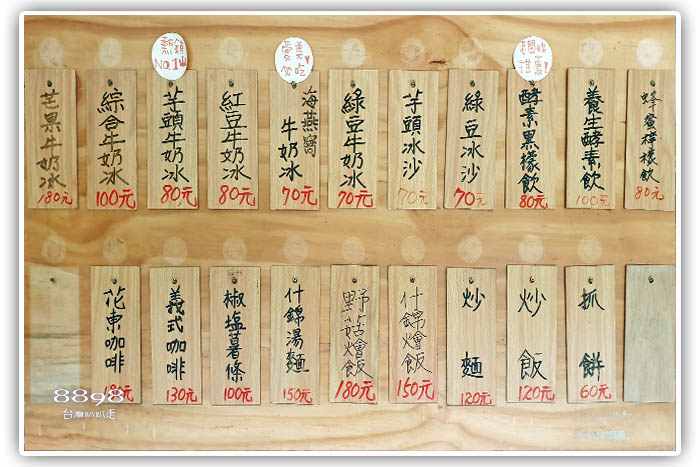 熱銷
NO.1
愛美
必吃
推薦!
芒果牛奶冰
180元
綜合牛奶冰
100元
芋頭牛奶冰
80元
紅豆牛奶冰
80元
海燕窩
牛奶冰
70元
綠豆牛奶冰
70元
芋頭冰沙
70元
綠豆冰沙
70元
酵素果檬飲
80元
養生酵素飲
100元
蜂蜜檸檬飲
80元
花東咖啡
義式咖啡
130元
椒塩薯條
100元
什錦湯麵
150元
野菇燴飯
180元
什錦燴飯
150元
炒麵
120元
炒飯
120元
抓餅
60元
8898
台灣趴趴走